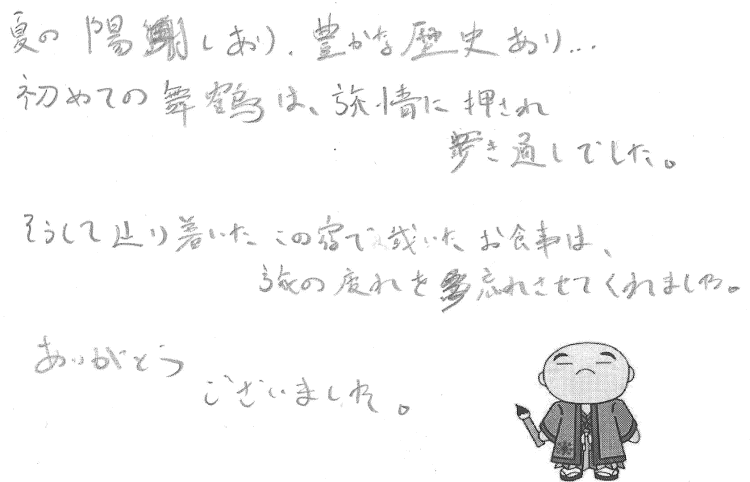 夏の陽射しあり、豊かな歴史あり...
初めての舞鶴は、旅情に押され
歩き通しでした。
そうして辿り着いたこの宿で戴いたお食事は、
旅の疲れを忘れさせてくれました。
ありがとう
ございました。